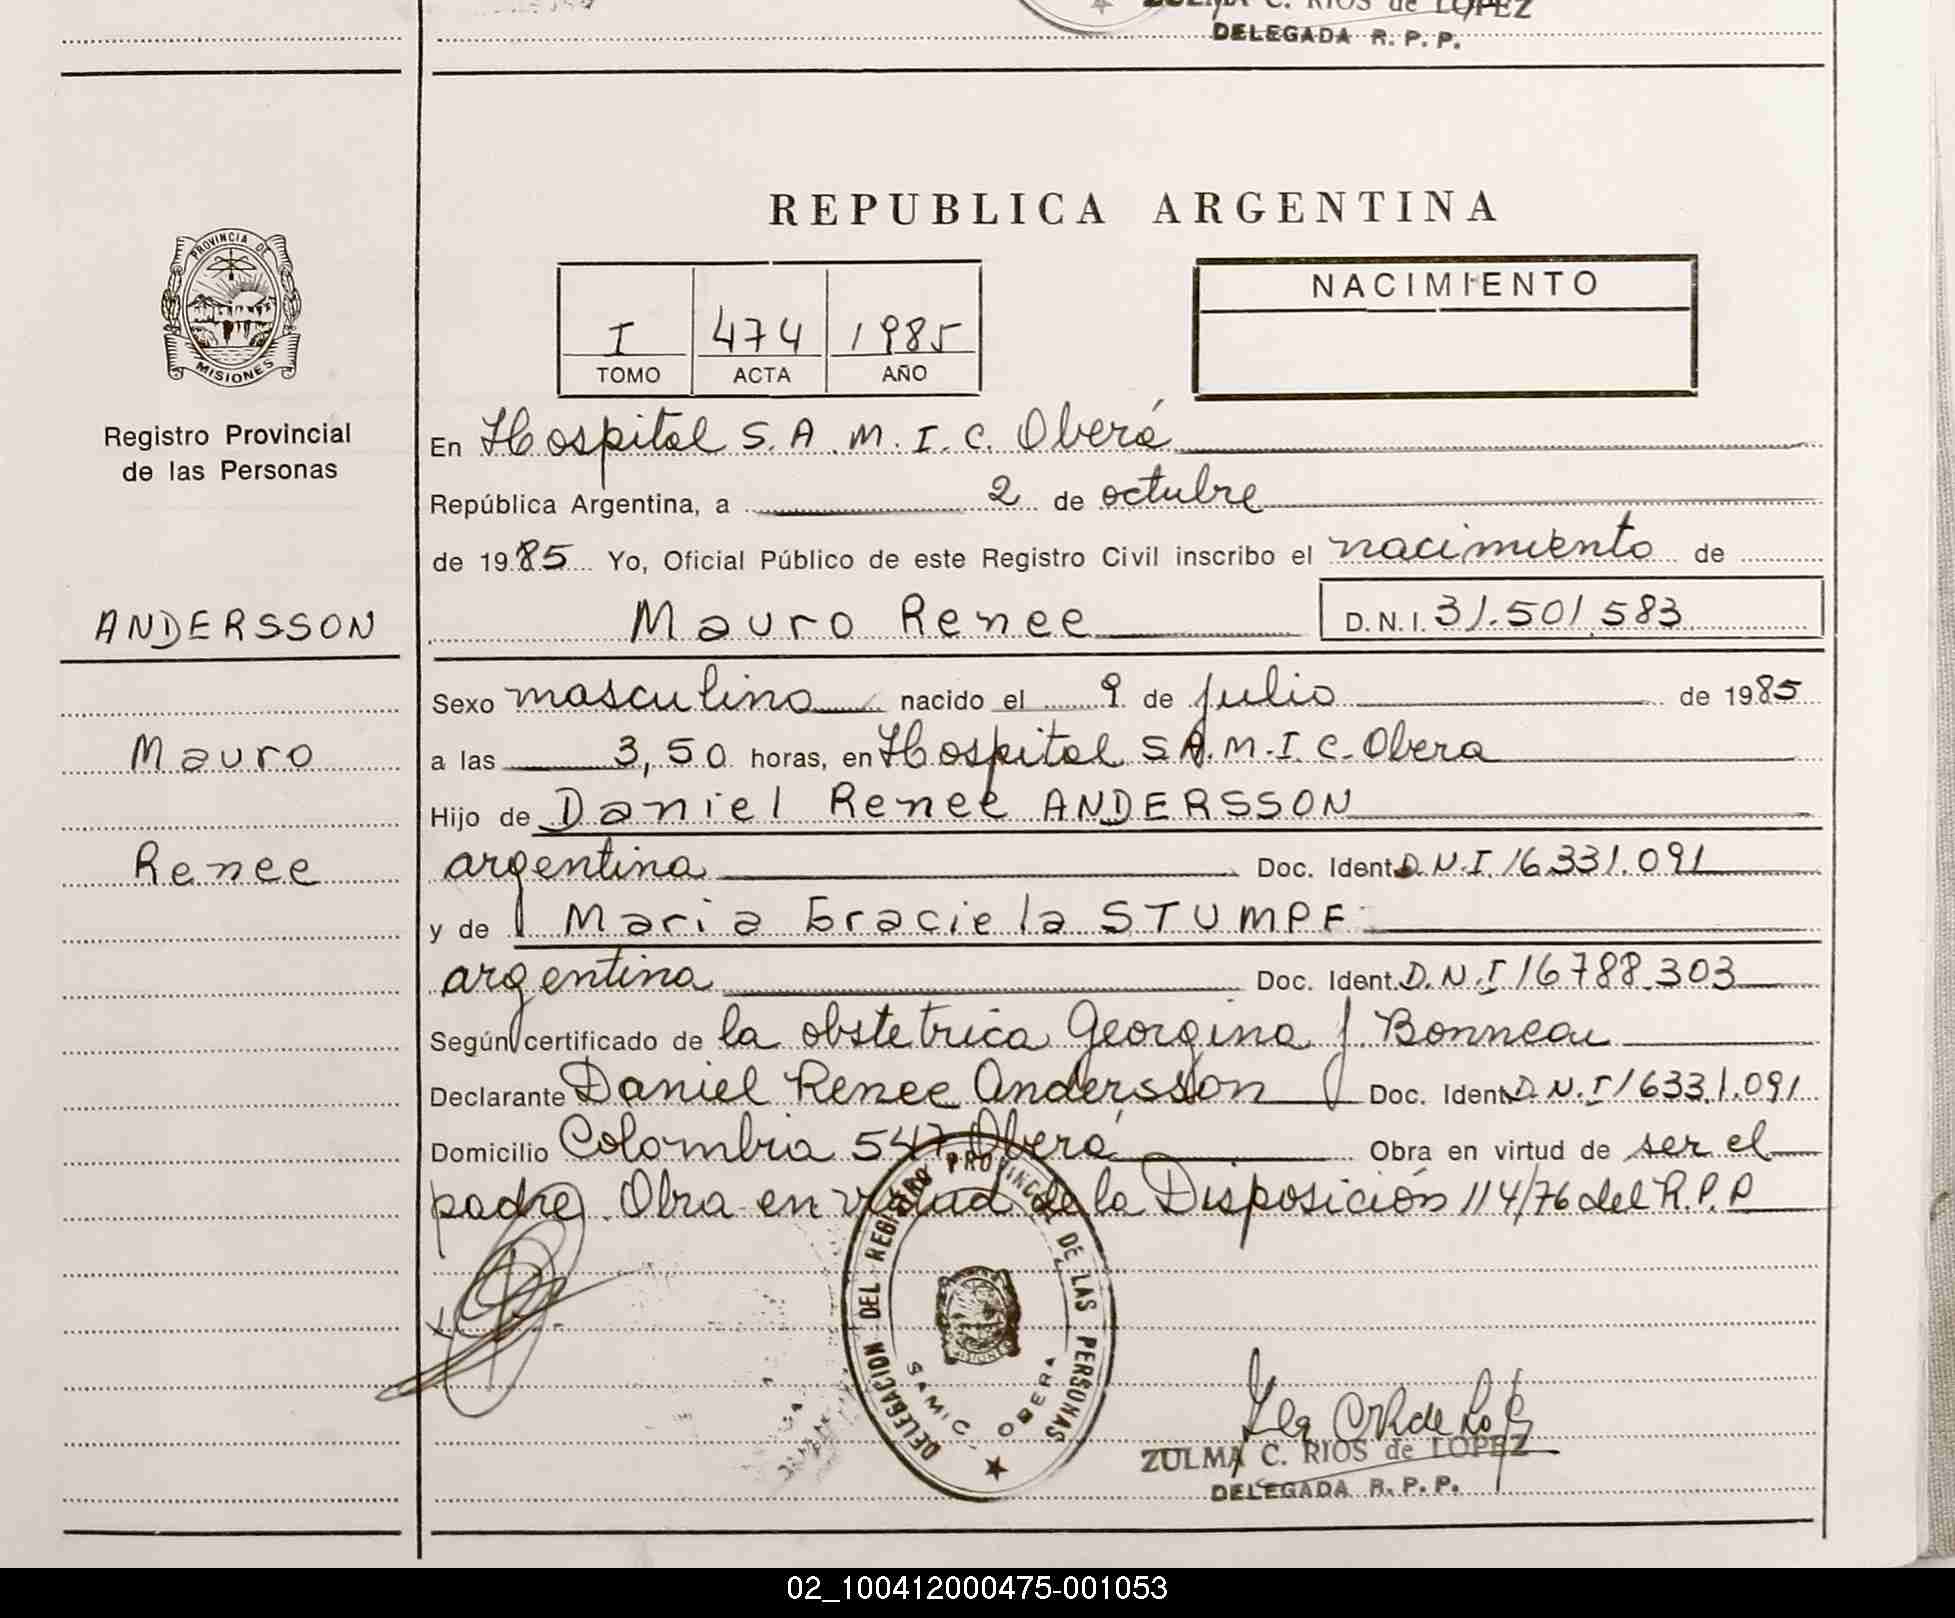 ZULMA C. RIOS de LOPEZ
DELEGADA R. P. P.
REPUBLICA ARGENTINA
PROVINCIA DE
MISIONES
Registro Provincial
de las Personas
I 474 1985
TOMO ACTA AÑO
NACIMIENTO
En Hospital S. A. M. I. C. Oberá
República Argentina, a 2 de octubre
de 1985 Yo, Oficial Público de este Registro Civil inscribo el nacimiento de
ANDERSSON
Mauro Renee D.N.I. 31.501.583
Sexo masculino nacido el 9 de julio de 1985
Mauro
a las 3,50 horas, en Hospital S.A.M.I.C. Obera
Hijo de Daniel Renee ANDERSSON
Renee
argentina Doc. Ident. D.N.I. 16331.091
y de Maria Graciela STUMPF
argentina Doc. Ident. D.N.I 16788.303
Según certificado de la obstetrica Georgina J. Bonneau
Declarante Daniel Renee Andersson Doc. Ident. D.N.I 16331.091
Domicilio Colombia 547 Oberá Obra en virtud de ser el
padre. Obra en virtud de la Disposición 114/76 del R.P.P
DELEGACION DEL REGISTRO PROVINCIAL DE LAS PERSONAS
MISIONES
SAMIC - OBERA
ZULMA C. RIOS de LOPEZ
DELEGADA R. P. P.
02_100412000475-001053